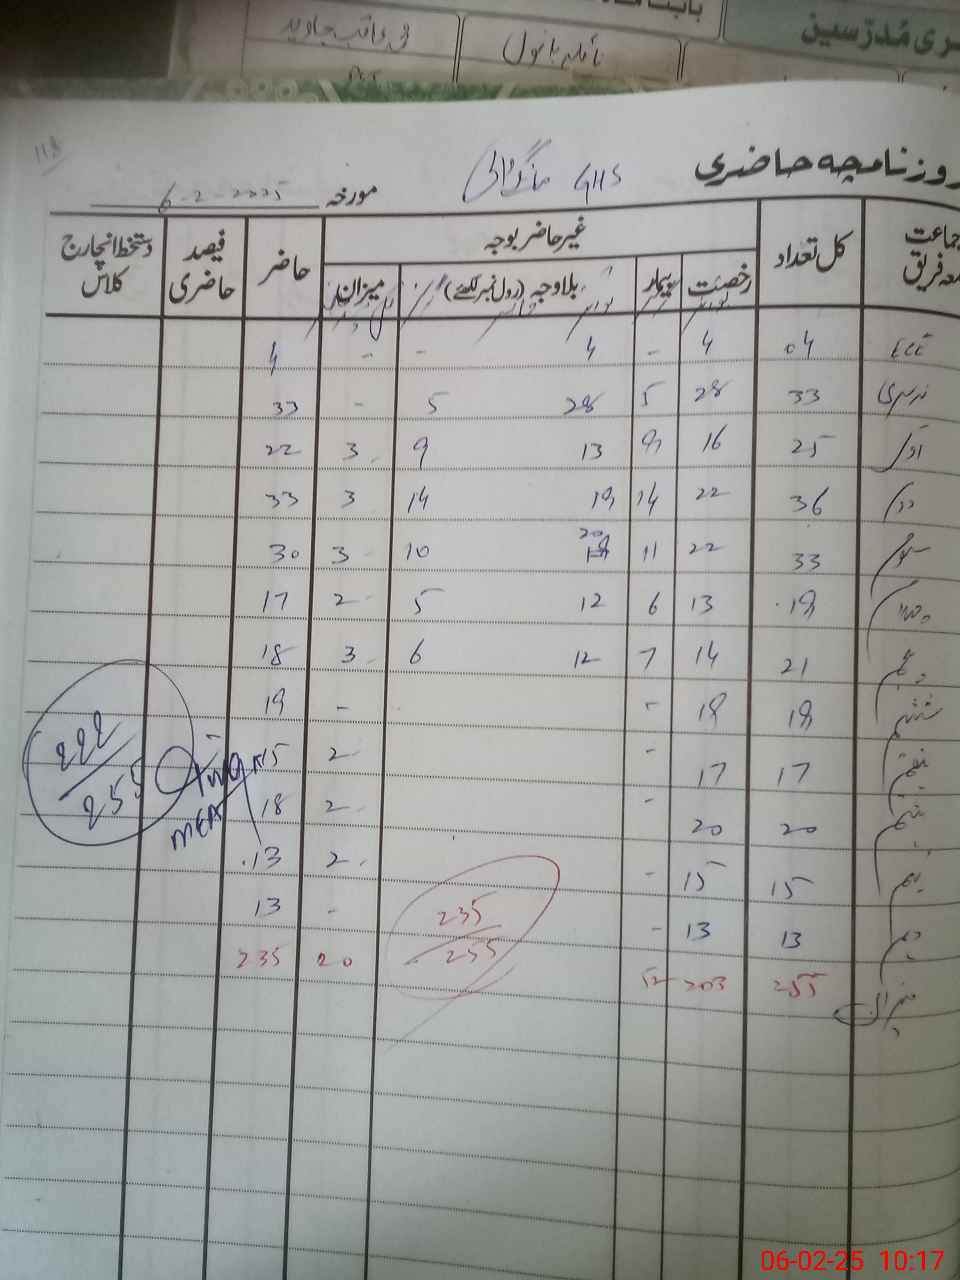 سری مُدرّسین
نائلہ بانول
118
روزنامچہ حاضری GHS مورخہ 6-2-2025
جماعت معہ فریق کل تعداد غیر حاضر بوجہ حاضر فیصد حاضری دستخط انچارج کلاس
رخصت بیمار بلاوجہ (رول نمبر لکھئے) میزان
04 4 - 4 - - 4
نرسری 33 28 5 28 5 - 33
اول 25 16 9 13 9 3 22
دوم 36 22 14 19 14 3 33
سوم 33 22 11 20 10 3 30
چہارم 19 13 6 12 5 2 17
پنجم 21 14 7 12 6 3 18
ششم 19 19 - - 19
ہفتم 17 17 - 2 15
ہشتم 20 20 - 2 18
نہم 15 15 - 2 13
دہم 13 13 - - 13
میزان 255 203 52 20 235
235
255
222
255
MEA
06-02-25 10:17